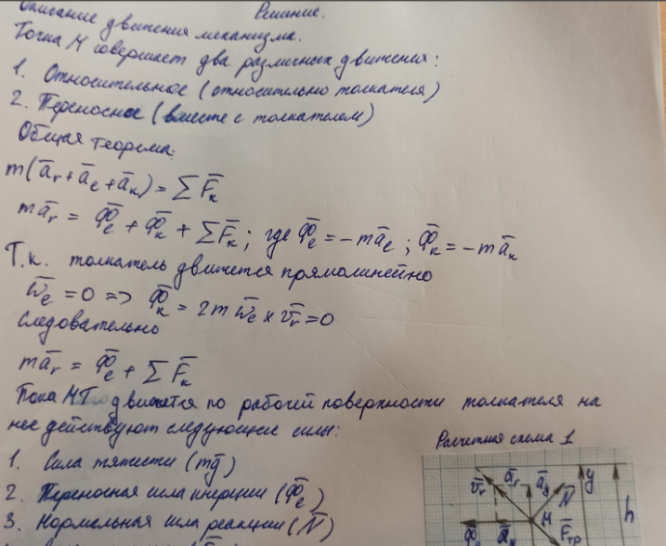 Решение.
Описание движения механизма.
Точка М совершает два различных движения:
1. Относительное (относительно толкателя)
2. Переносное (вместе с толкателем)
Общая теорема:
m(a̅r + a̅e + a̅к) = ∑F̅к
ma̅r = Ф̅e + Ф̅к + ∑F̅к; где Ф̅e = −ma̅e; Ф̅к = −ma̅к
Т.к. толкатель движется прямолинейно
w̅e = 0 => Ф̅к = 2m w̅e × v̅r = 0
следовательно
ma̅r = Ф̅e + ∑F̅к
Пока МТ движется по рабочей поверхности толкателя на
нее действуют следующие силы:
1. Сила тяжести (mg̅)
2. Переносная сила инерции (Ф̅e)
3. Нормальная сила реакции (N̅)
Расчетная схема 1
v̅r a̅r a̅y N̅ y
M h
F̅тр